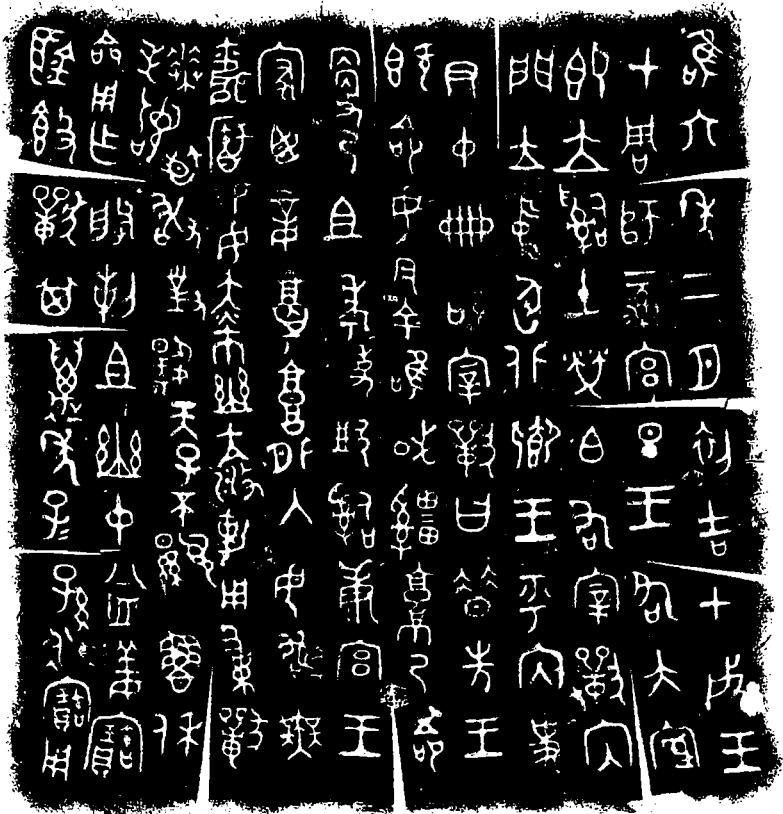 隹六年二月初吉甲戌王
才周師彔宮旦王各大室
即立𤔲土焚白右宰獸內
門立中廷北鄉王乎內史
尹中冊命宰獸曰昔先王
既命女今余唯或𤕌𩫖乃命
更乃且考事𤔲康宮王
家臣妾𩫖庸外入毋敢無
聞知易女赤巿幽亢攸勒用事獸
拜稽首敢對揚天子不顯魯休
命用乍朕剌且幽中益姜寶
簋獸其萬年子子孫永寶用